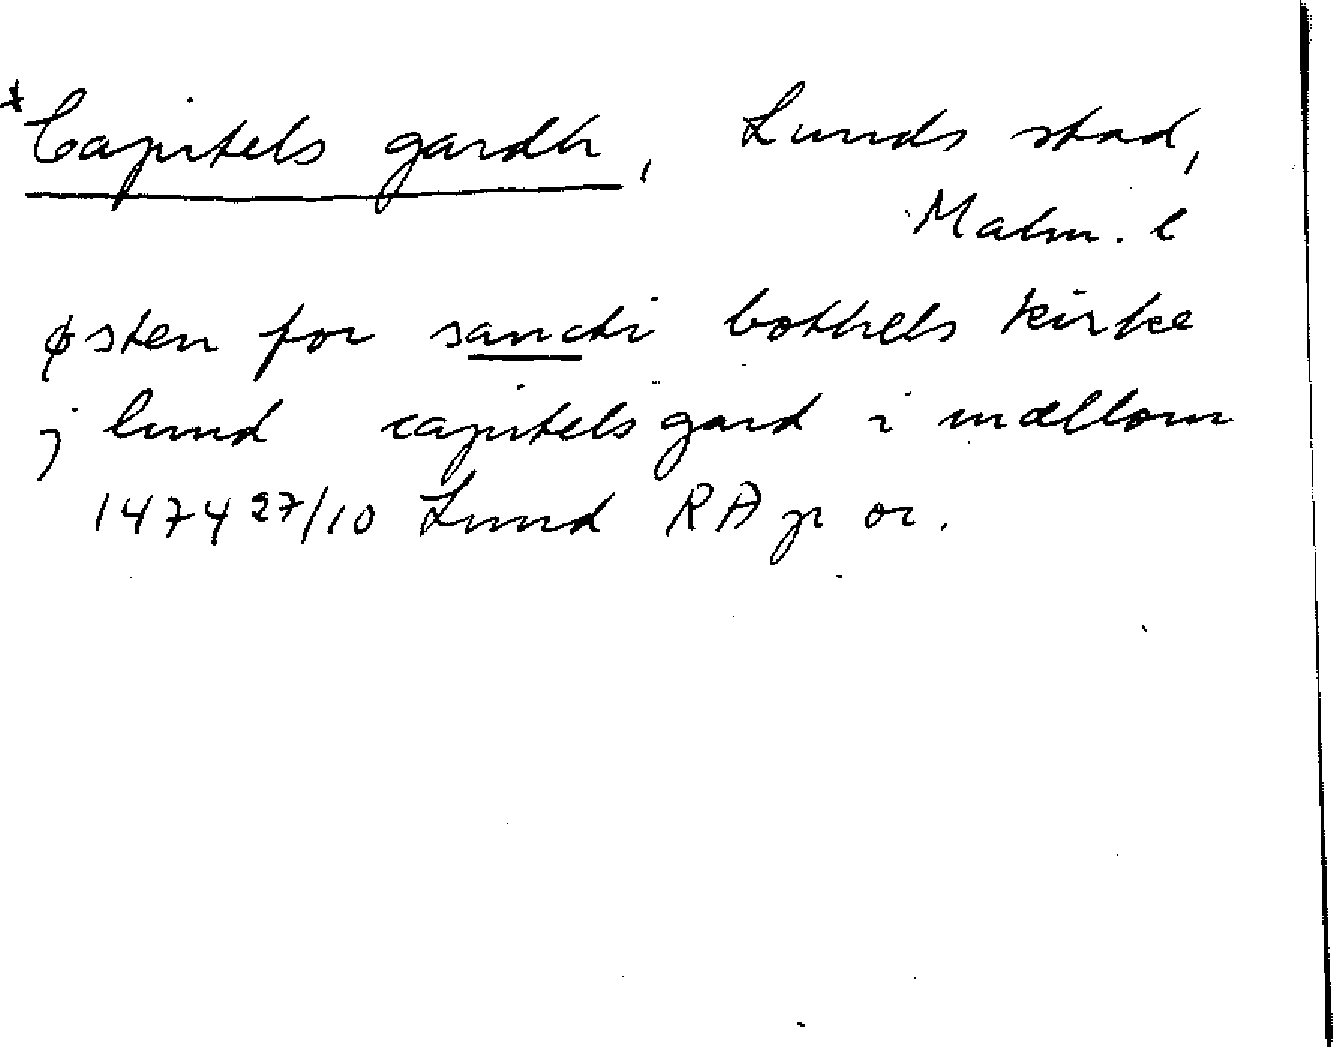 *Capitels gardh, Lunds stad,
Malm. l
østen for sancti bothels kirke
j lund capitels gard i mællom
1474 27/10 Lund RA p or.